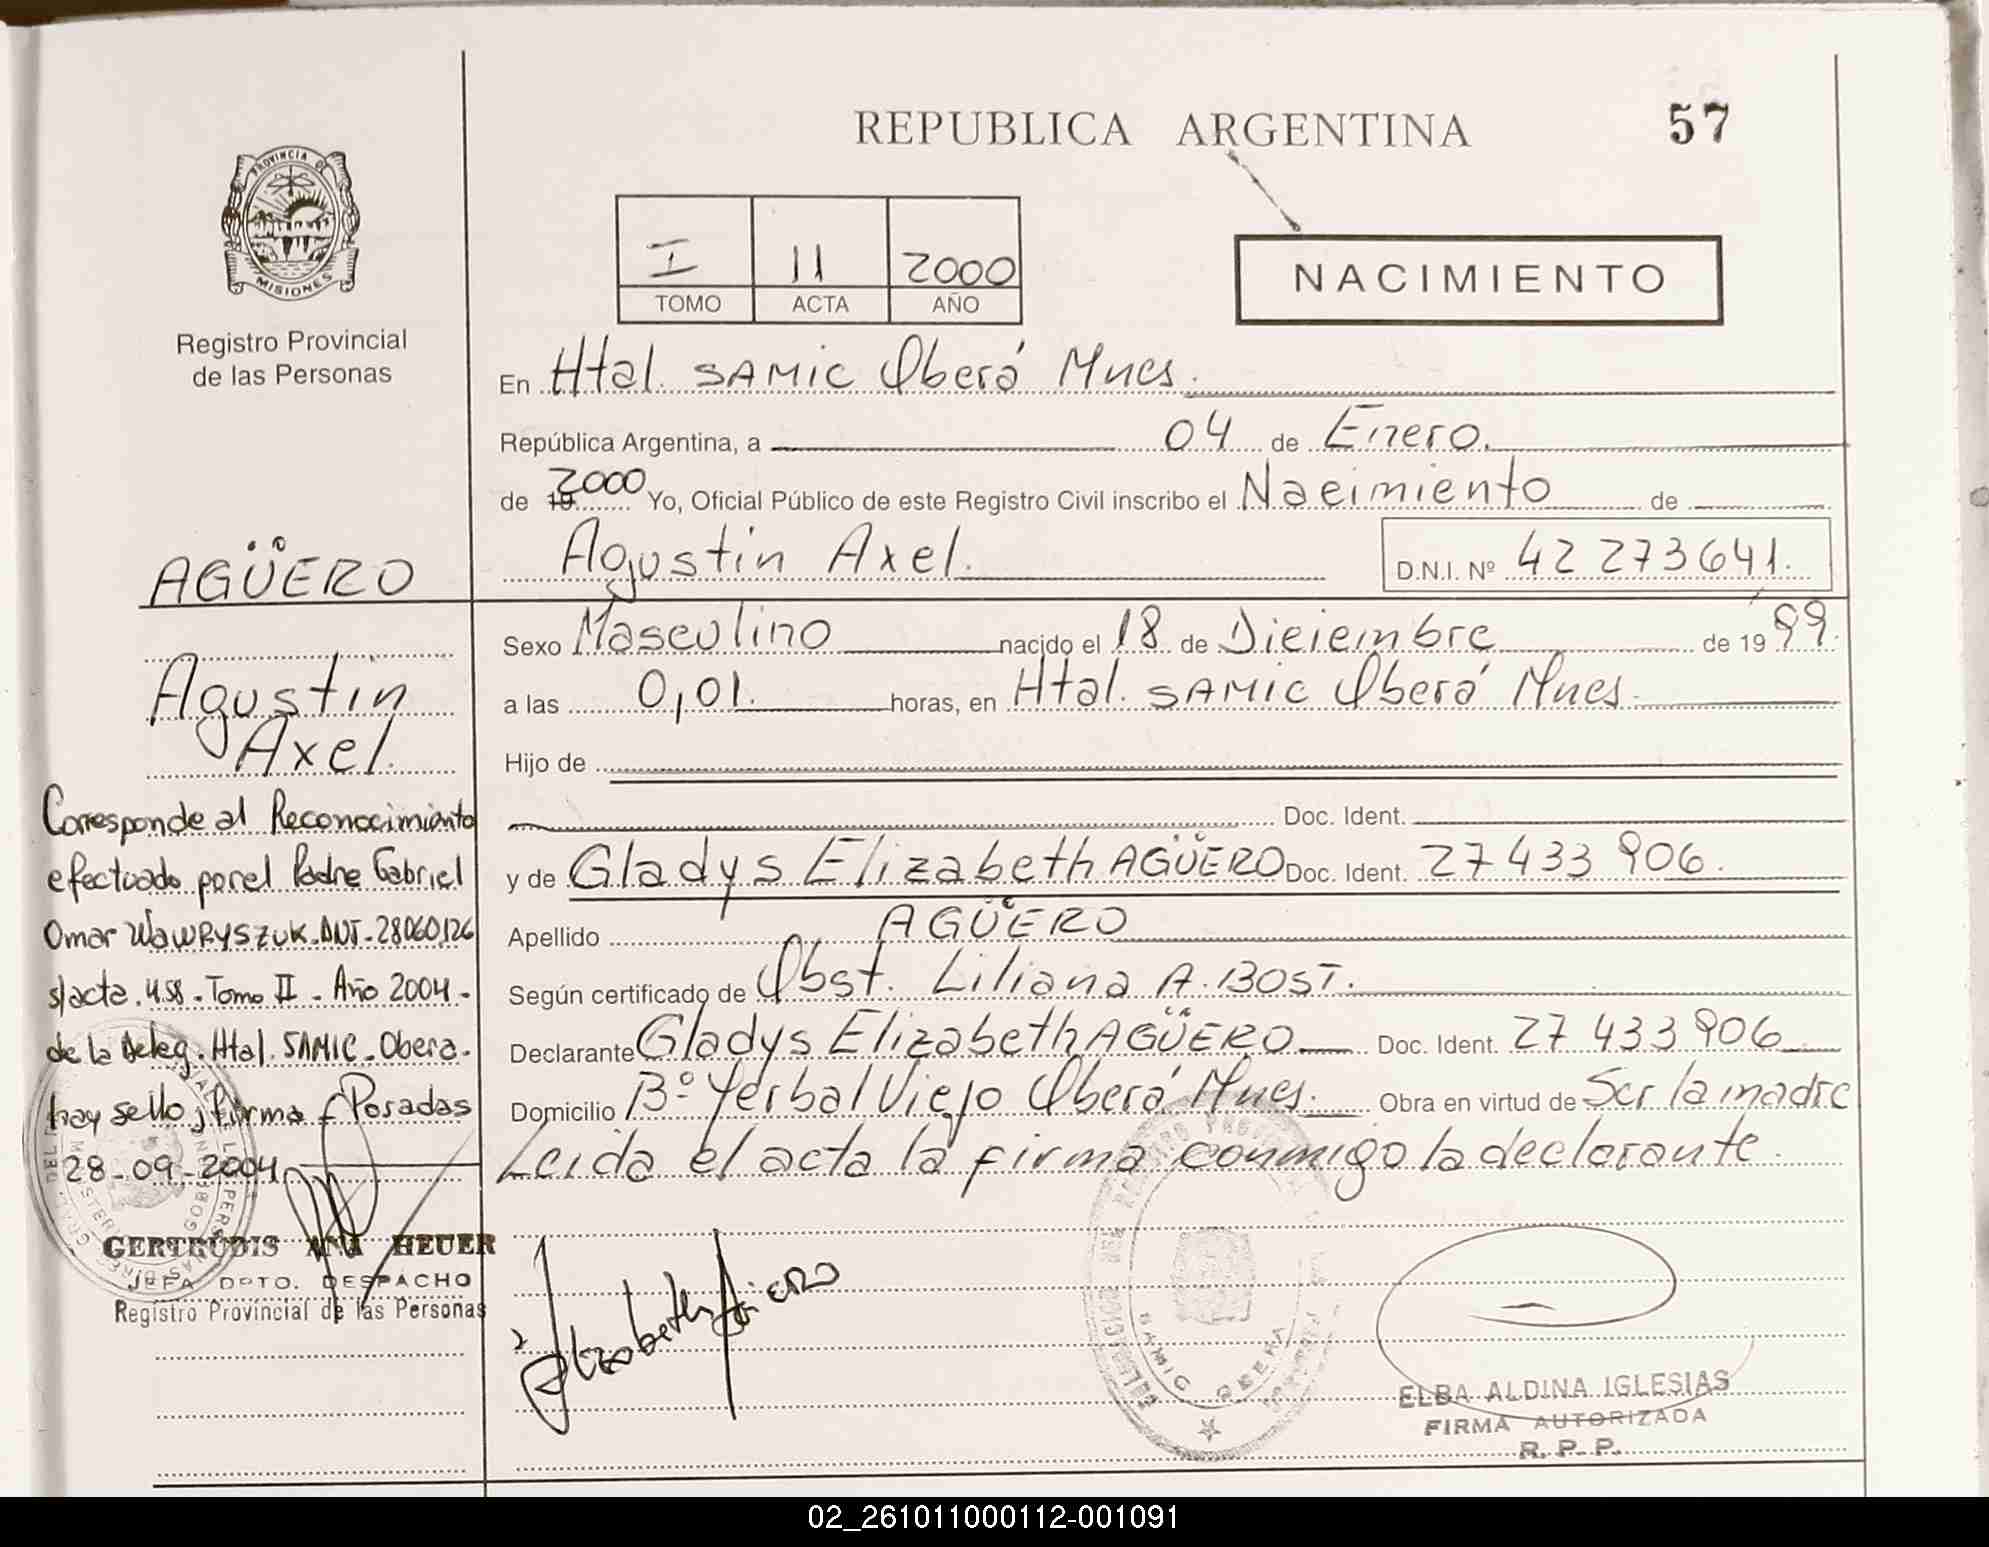 REPUBLICA ARGENTINA
57
PROVINCIA DE
MISIONES
Registro Provincial
de las Personas
I 11 2000
TOMO ACTA AÑO
NACIMIENTO
En Htal. SAMIC Oberá Mnes.
República Argentina, a 04 de Enero.
de 19 2000 Yo, Oficial Público de este Registro Civil inscribo el Nacimiento de
Agustin Axel.
D.N.I. Nº 42 273641.
Sexo Masculino nacido el 18 de Diciembre de 19 99.
a las 0,01. horas, en Htal. SAMIC Oberá Mnes.
Hijo de
Doc. Ident.
y de Gladys Elizabeth AGÜERO Doc. Ident. 27 433 906.
Apellido AGÜERO
Según certificado de Obst. Liliana A. BOST.
Declarante Gladys Elizabeth AGÜERO Doc. Ident. 27 433 906
Domicilio Bº Yerbal Viejo Oberá Mnes. Obra en virtud de Ser la madre
Leida el acta la firma conmigo la declarante.
AGÜERO
Agustin
Axel.
Corresponde al Reconocimiento
efectuado por el Padre Gabriel
Omar WAWRYSZUK. DNI-28060126
s/acta. 458 - Tomo II - Año 2004 -
de la Deleg. Htal. SAMIC - Obera.-
hay sello y firma - Posadas
28-09-2004
GERTRUDIS ANA HEUER
JEFA DPTO. DESPACHO
Registro Provincial de las Personas
Elizabeth Agüero
SAMIC OBERA
ELBA ALDINA IGLESIAS
FIRMA AUTORIZADA
R. P. P.
02_261011000112-001091